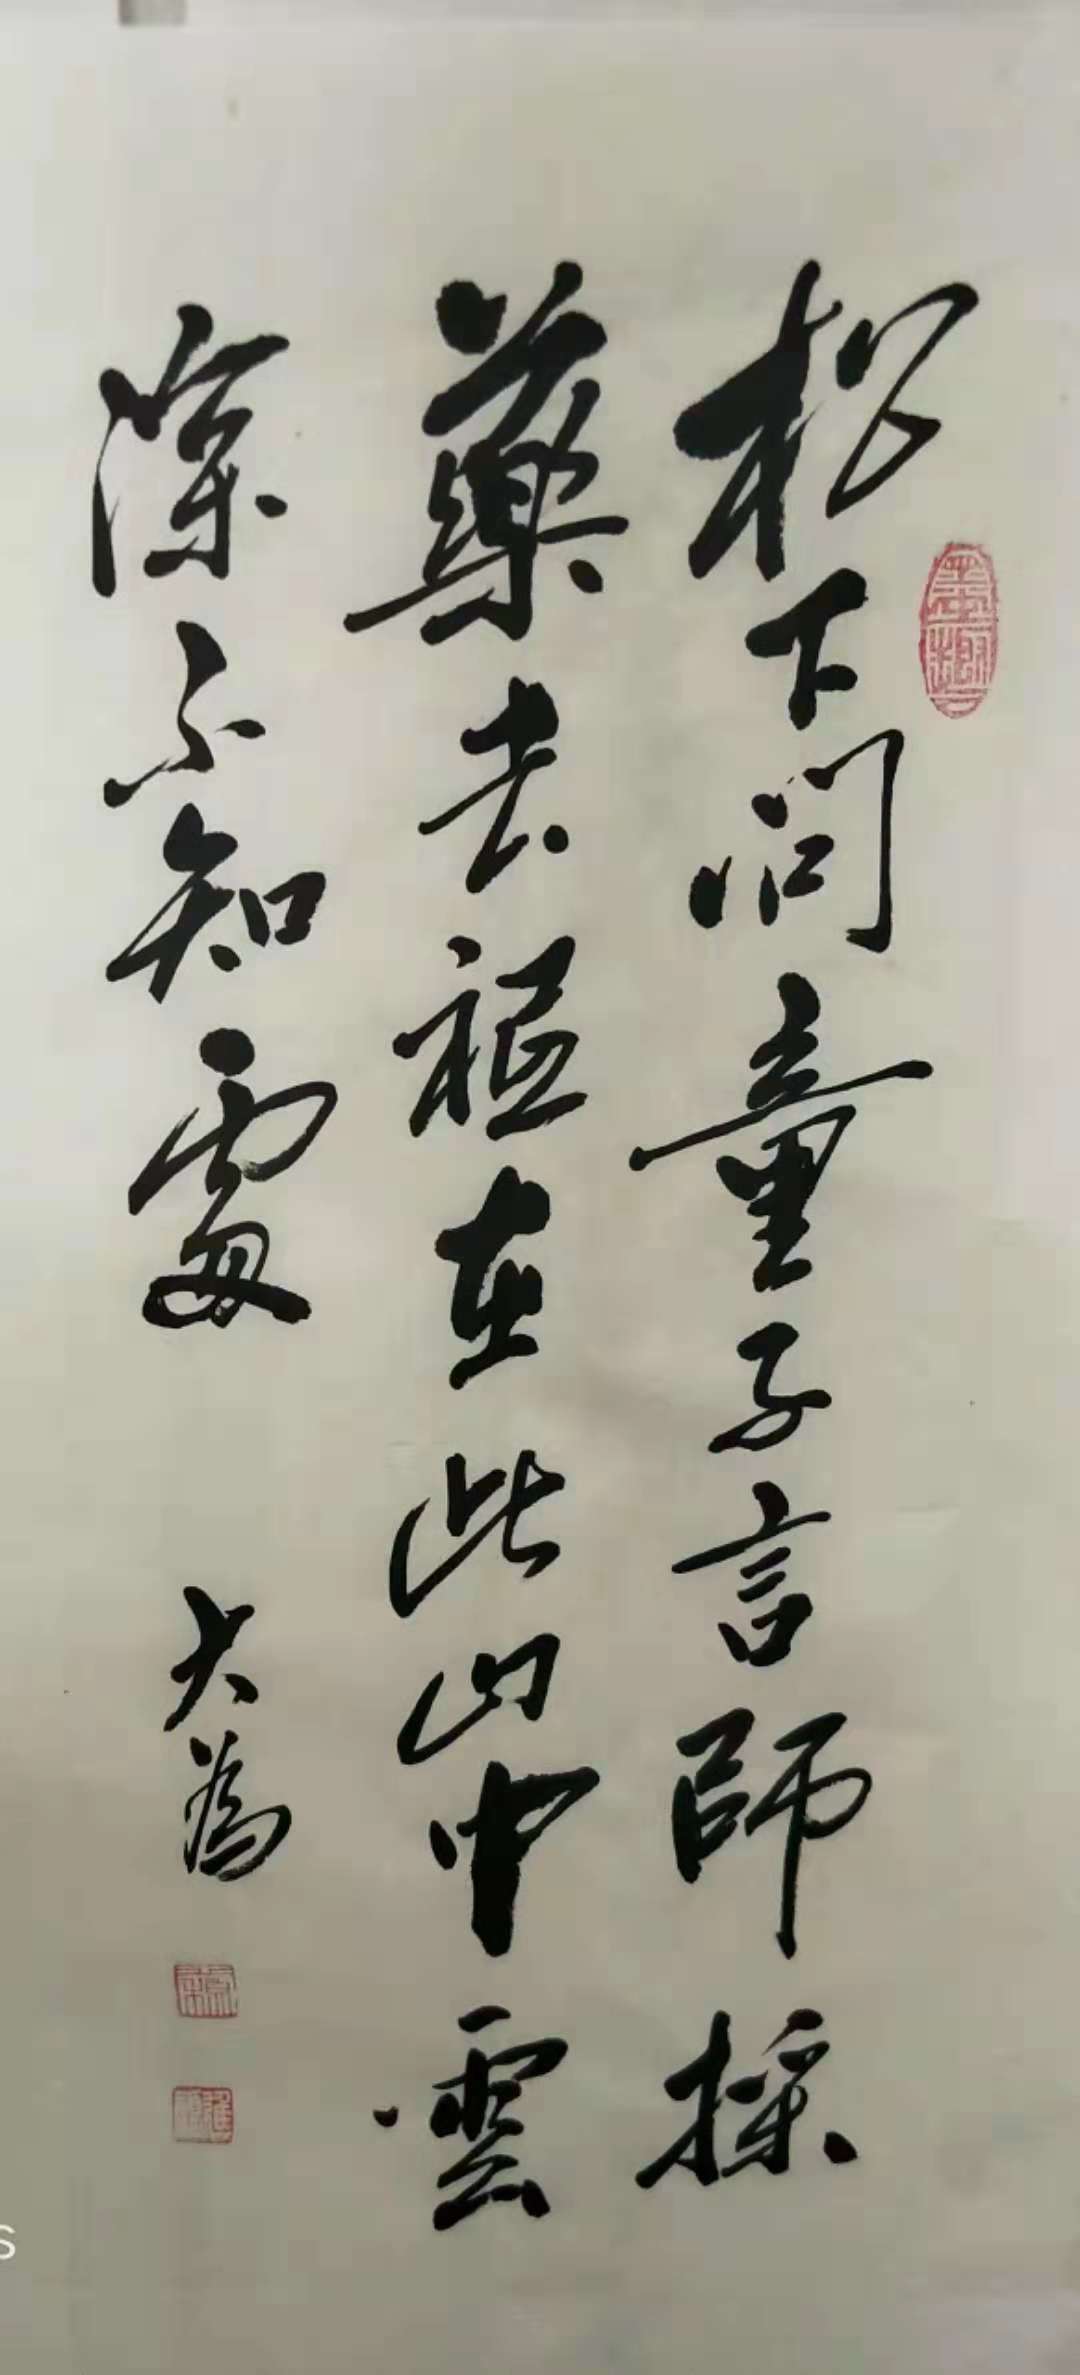 松下问童子言師採
藥去祗在此山中雲
深不知處
大為
S